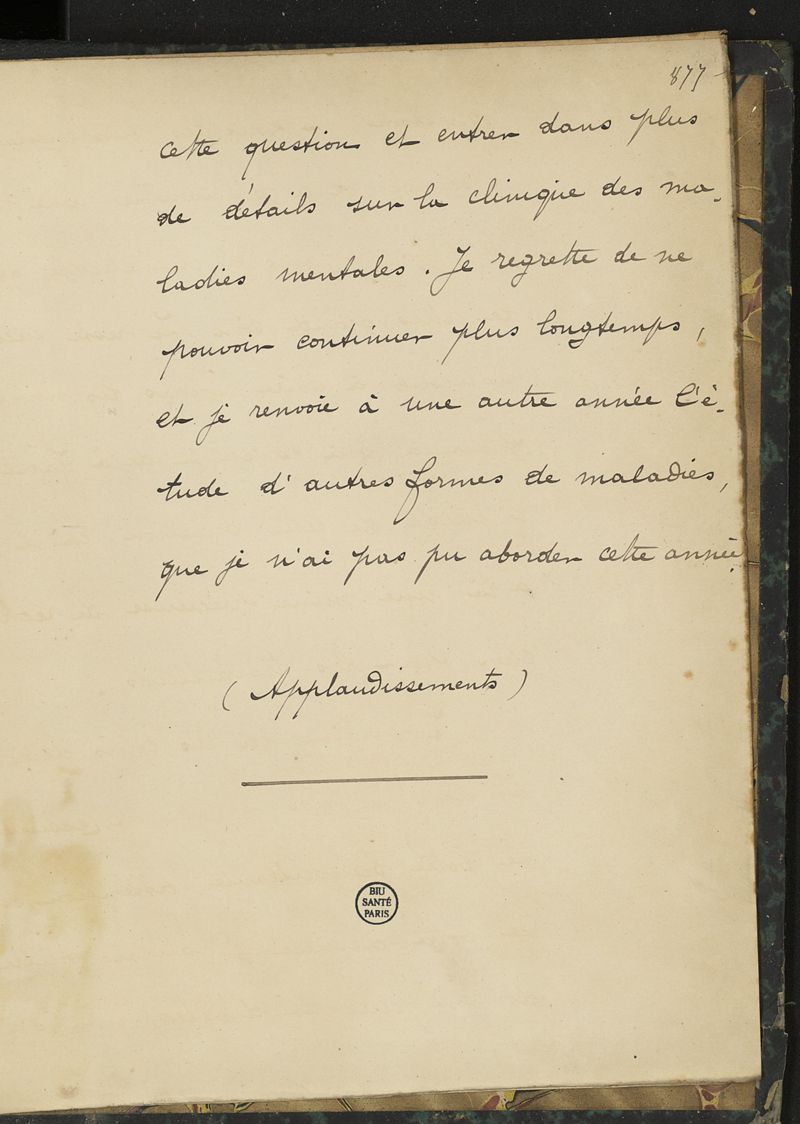 877
cette question et entrer dans plus
de détails sur la clinique des ma-
ladies mentales. Je regrette de ne
pouvoir continuer plus longtemps,
et je renvoie à une autre année l'é-
tude d'autres formes de maladies,
que je n'ai pas pu aborder cette année.
(Applaudissements)
BIU
SANTÉ
PARIS